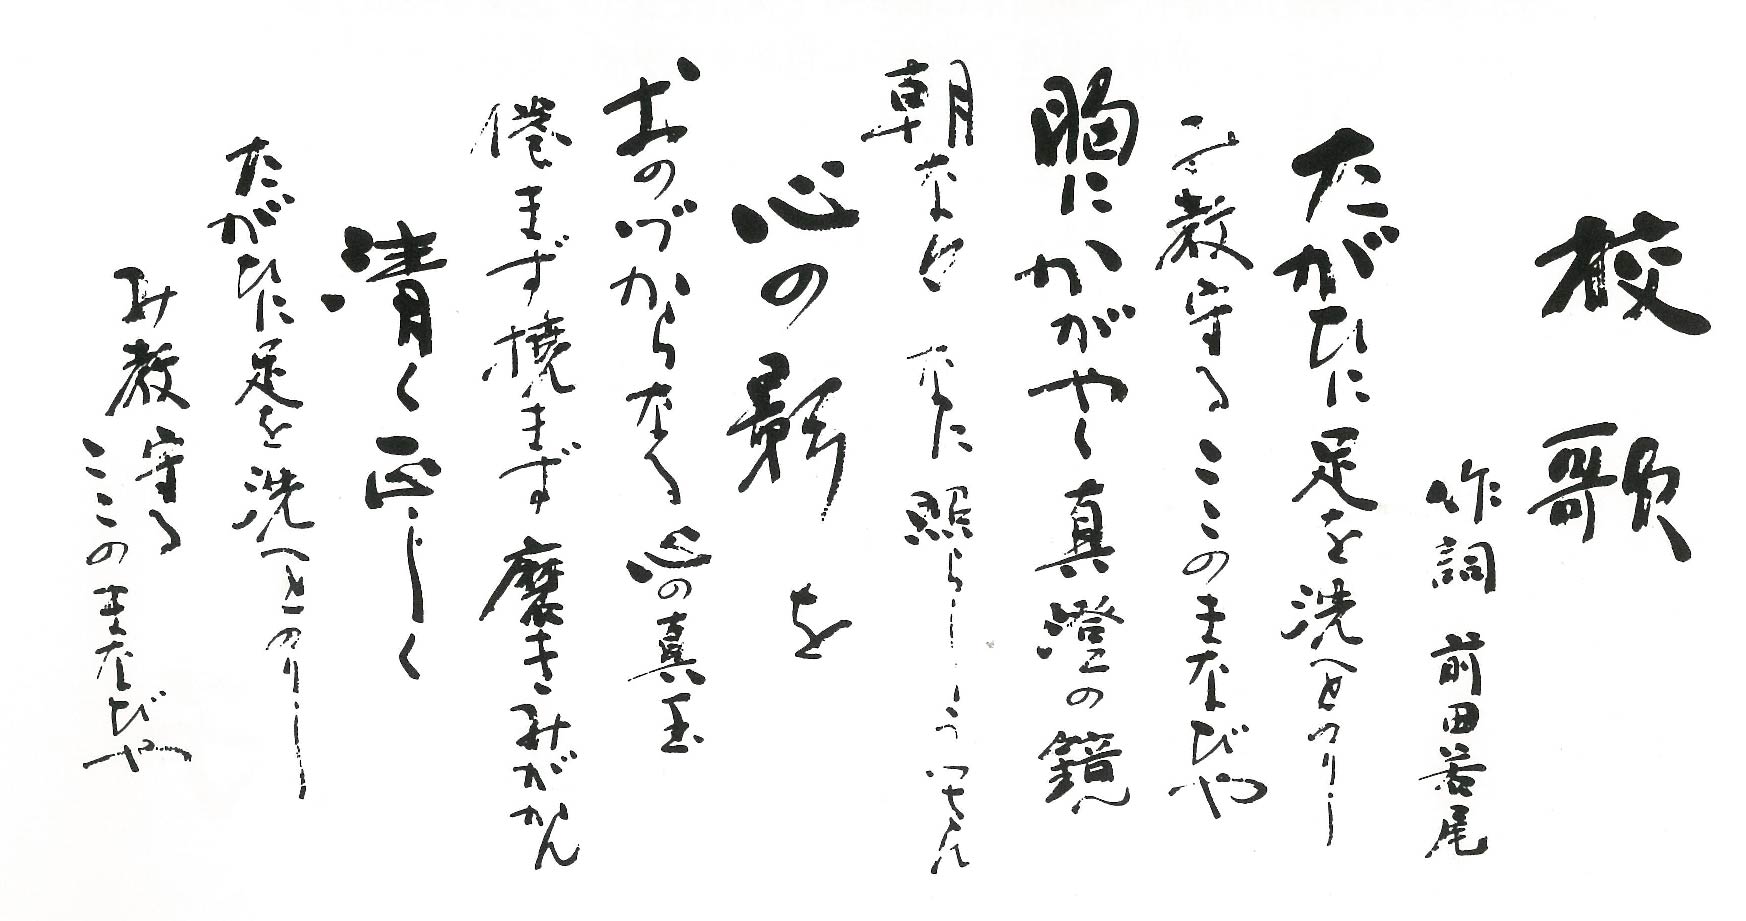 校歌
作詞 前田若尾
たがひに足を洗へとのりし
み教守るここのまなびや
胸にかがやく真澄の鏡
朝な夕なに照らしうつさん
心の影を
おのづからなる心の真玉
倦まず撓まず磨きみがかん
清く正しく
たがひに足を洗へとのりし
み教守る
ここのまなびや